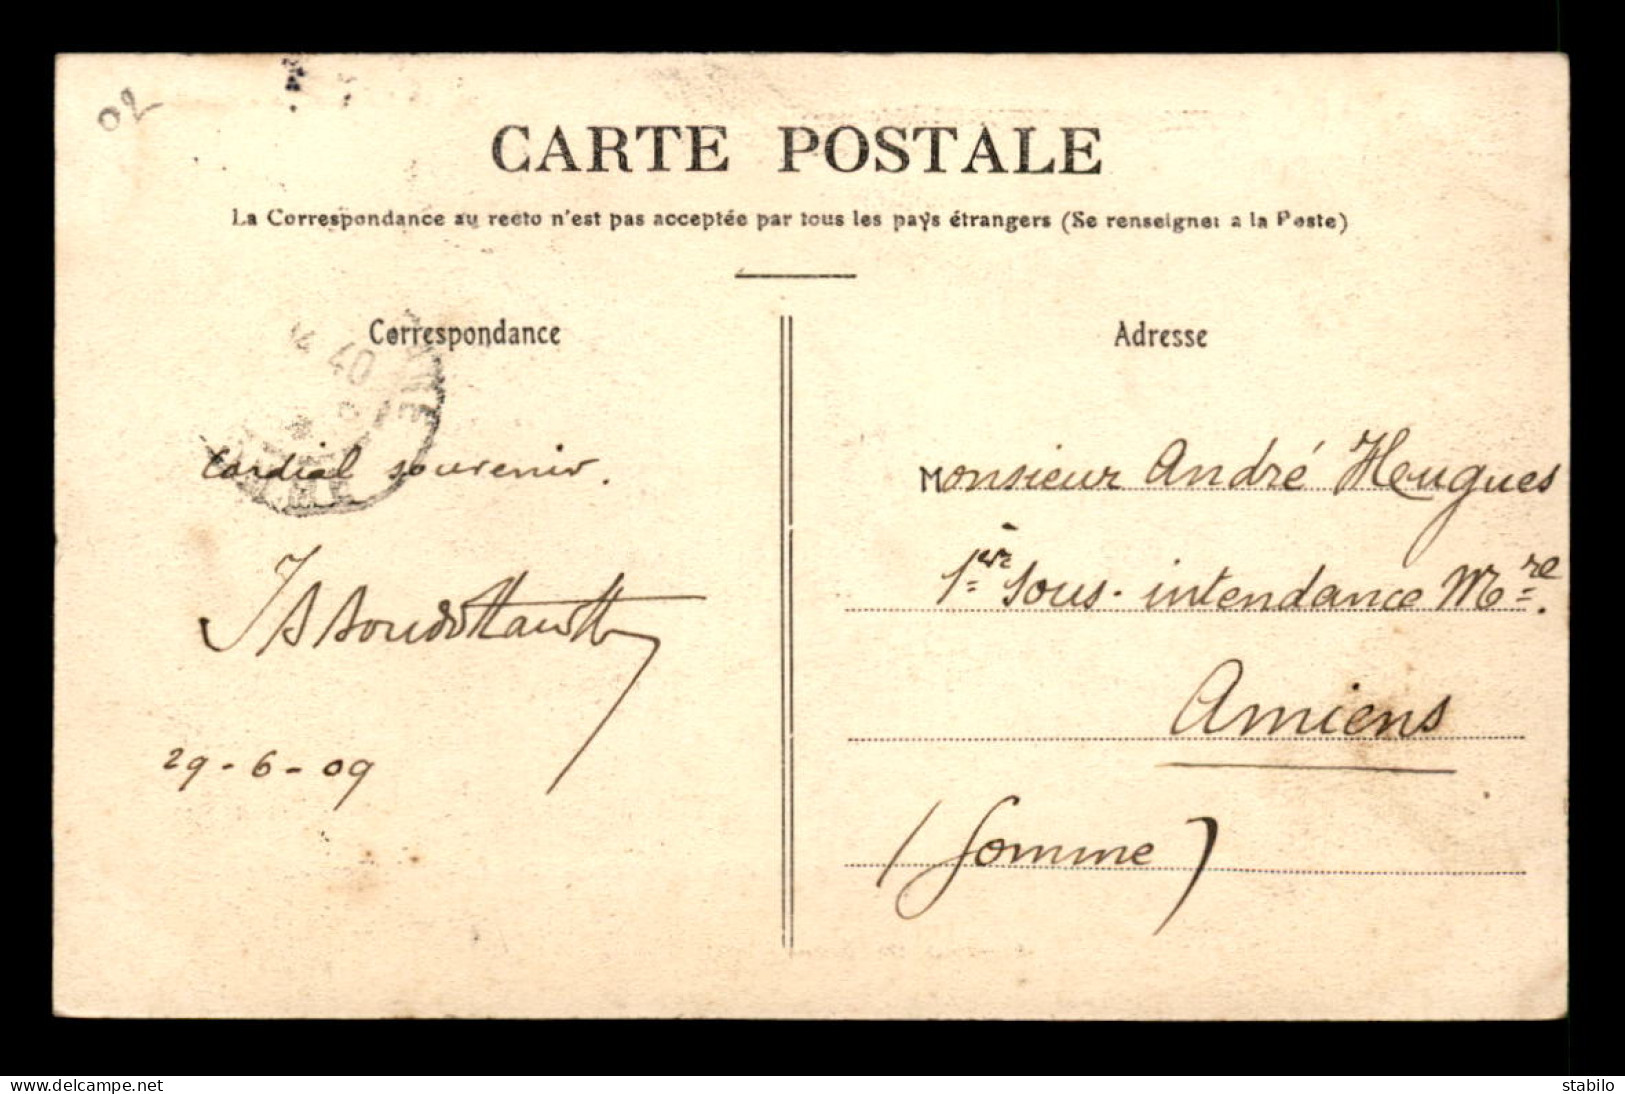 02
CARTE POSTALE
La Correspondance au recto n'est pas acceptée par tous les pays étrangers (Se renseigner a la Poste)
Correspondance
40
Cordial souvenir.
29-6-09
Adresse
Monsieur André Heugues
1ère Sous-intendance Mre.
Amiens
(Somme)
delcampe.net
stabilo